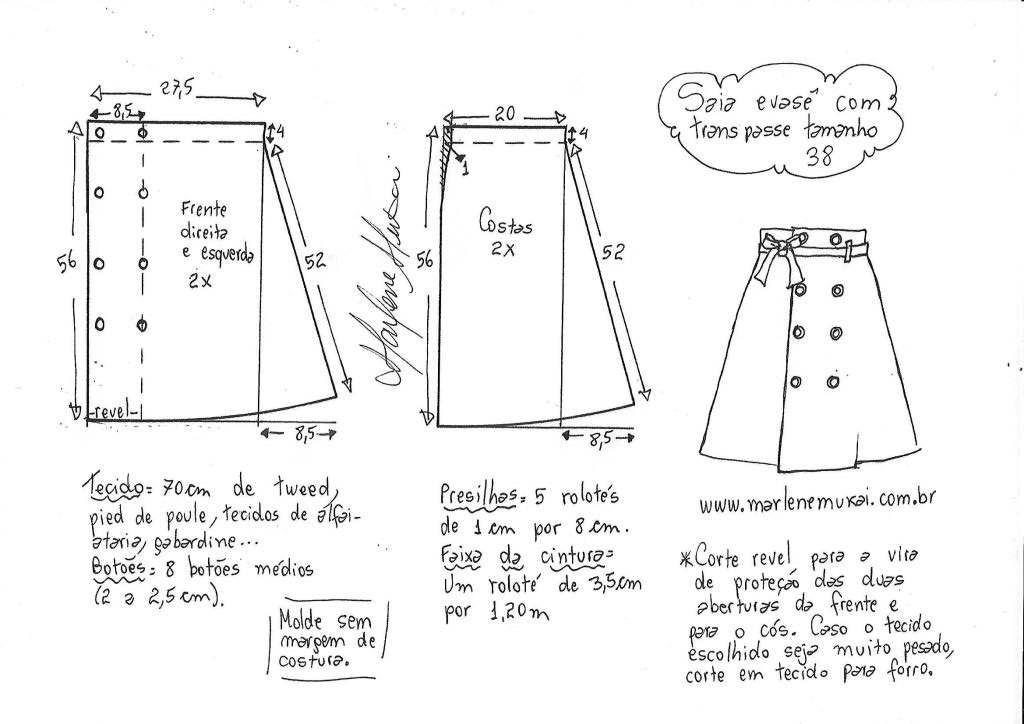 Saia evasê com
transpasse tamanho
38
27,5
8,5
4
56
Frente
direita
e esquerda
2x
52
revel
8,5
Marlene Mukai
20
4
1
56
Costas
2x
52
8,5
www.marlenemukai.com.br
Tecido= 70cm de tweed,
pied de poule, tecidos de alfai-
ataria, gabardine...
Botões= 8 botões médios
(2 a 2,5cm).
Molde sem
margem de
costura.
Presilhas= 5 rolotés
de 1cm por 8cm.
Faixa da cintura=
Um roloté de 3,5cm
por 1,20m
*Corte revel para a vira
de proteção das duas
aberturas da frente e
para o cós. Caso o tecido
escolhido seja muito pesado,
corte em tecido para forro.